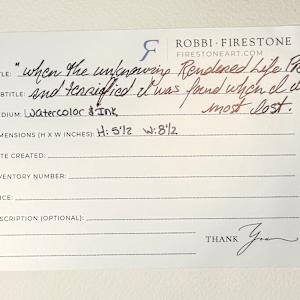 R ROBBI · FIRESTONE
FIRESTONEART.COM
TLE: "when the unknowing Rendered Life
SUBTITLE: and terrified I was found when I
DIUM: Watercolor & Ink most lost.
MENSIONS (H X W INCHES): H: 5 1/2 W: 8 1/2
TE CREATED:
VENTORY NUMBER:
ICE:
SCRIPTION (OPTIONAL):
THANK You